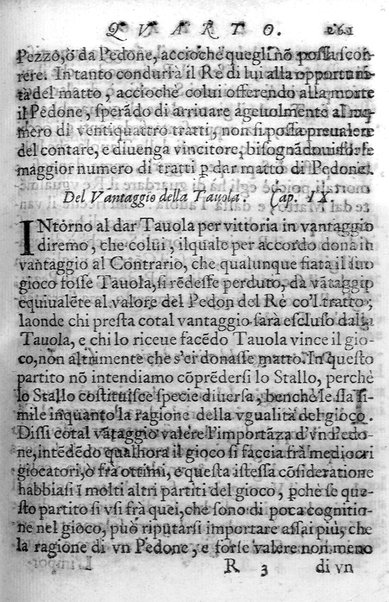 QVARTO. 261
Pezzo, ò da Pedone, accioche quegli nõ possa scor-
rere. In tanto condurrà il Rè di lui alla opportuni-
tà del matto, accioche colui offerendo alla morte
il Pedone, sperãdo di arriuare ageuolmente al nu-
mero di ventiquattro tratti, non si possa preualere
del contare, e diuenga vincitore, bisognãdouisi forse
maggior numero di tratti p dar matto di Pedone.
Del Vantaggio della Tauola. Cap. IX.
INtorno al dar Tauola per vittoria in vantaggio
diremo, che colui, il quale per accordo dona in
vantaggio al Contrario, che qualunque fiata il suo
gioco fosse Tauola, si rẽdesse perduto, dà vataggio
equiualẽte al valore del Pedon del Rè co'l tratto;
laonde chi presta cotal vantaggio sarà escluso dalla
Tauola, e chi lo riceue facẽdo Tauola vince il gio-
co, non altrimente che s'ei donasse matto. In questo
partito nõ intendiamo cõprẽdersi lo Stallo, perchè
lo Stallo costituisce specie diuersa, benchè le sia si-
mile inquanto la ragione della vgualità del gioco.
Dissi cotal vãtaggio valere l'importãza d'vn Pedo-
ne, intẽdẽdo qualhora il gioco si faccia frà mediocri
giocatori, ò frà ottimi, e questa istessa cõsideratione
habbiasi ĩ molti altri partiti del gioco, pchè se que-
sto partito si vsi frà quei, che sono di pota cognitio-
ne nel gioco, può riputarsi importare assai più, che
la ragione di vn Pedone, e forse valere non meno
R 3 di vn